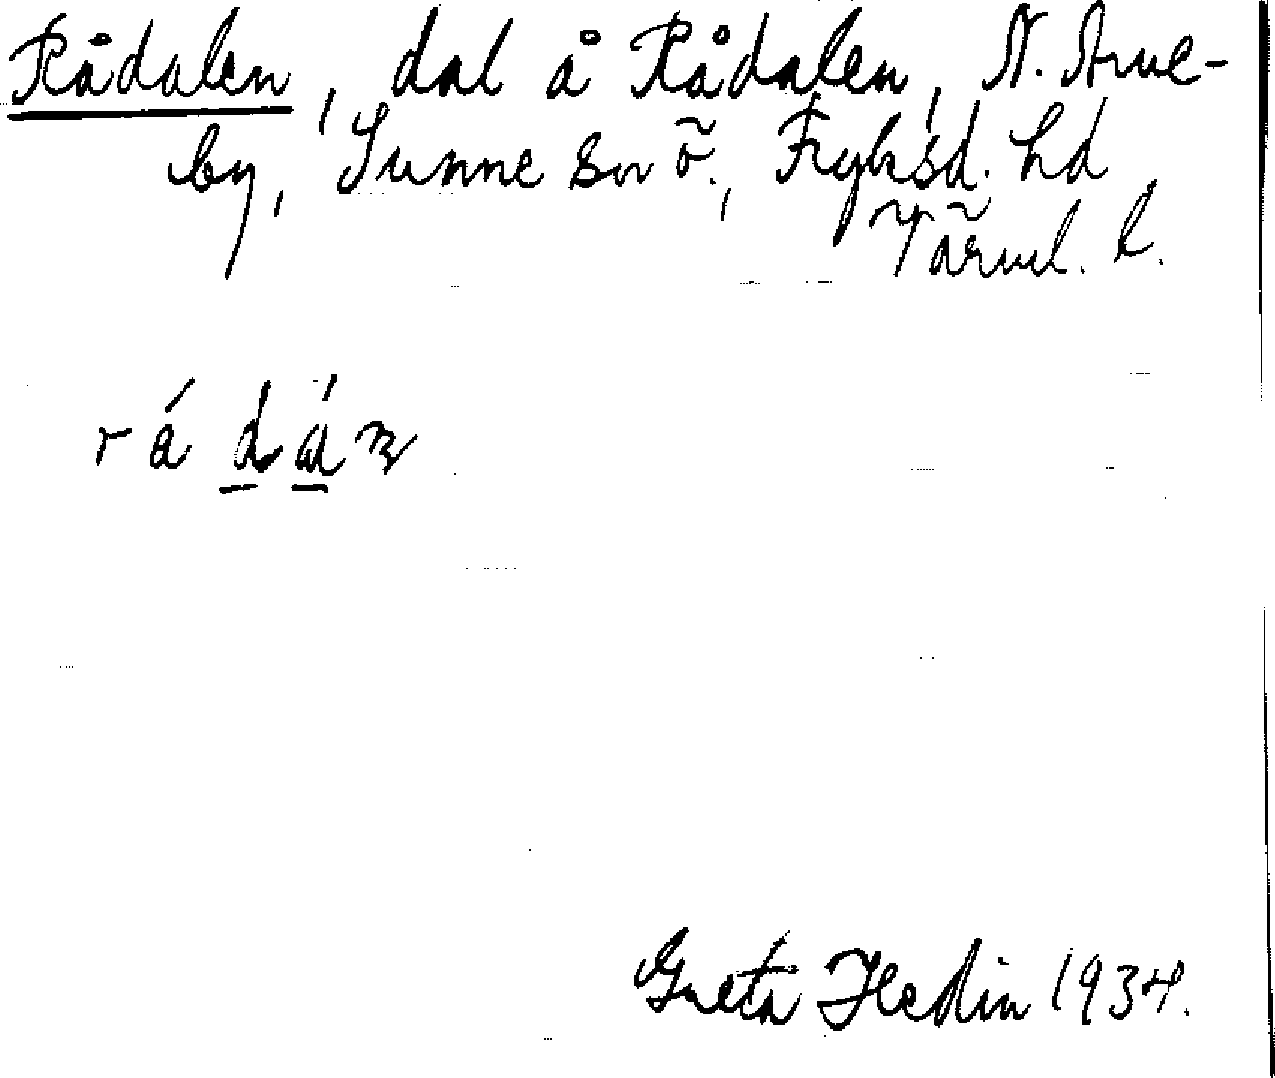 Rådalen, dal å Rådalen, N. Arne-
by, Sunne sn ö., Fryksd. hd
Värml. l.
rá dán
Greta Hedin 1934.